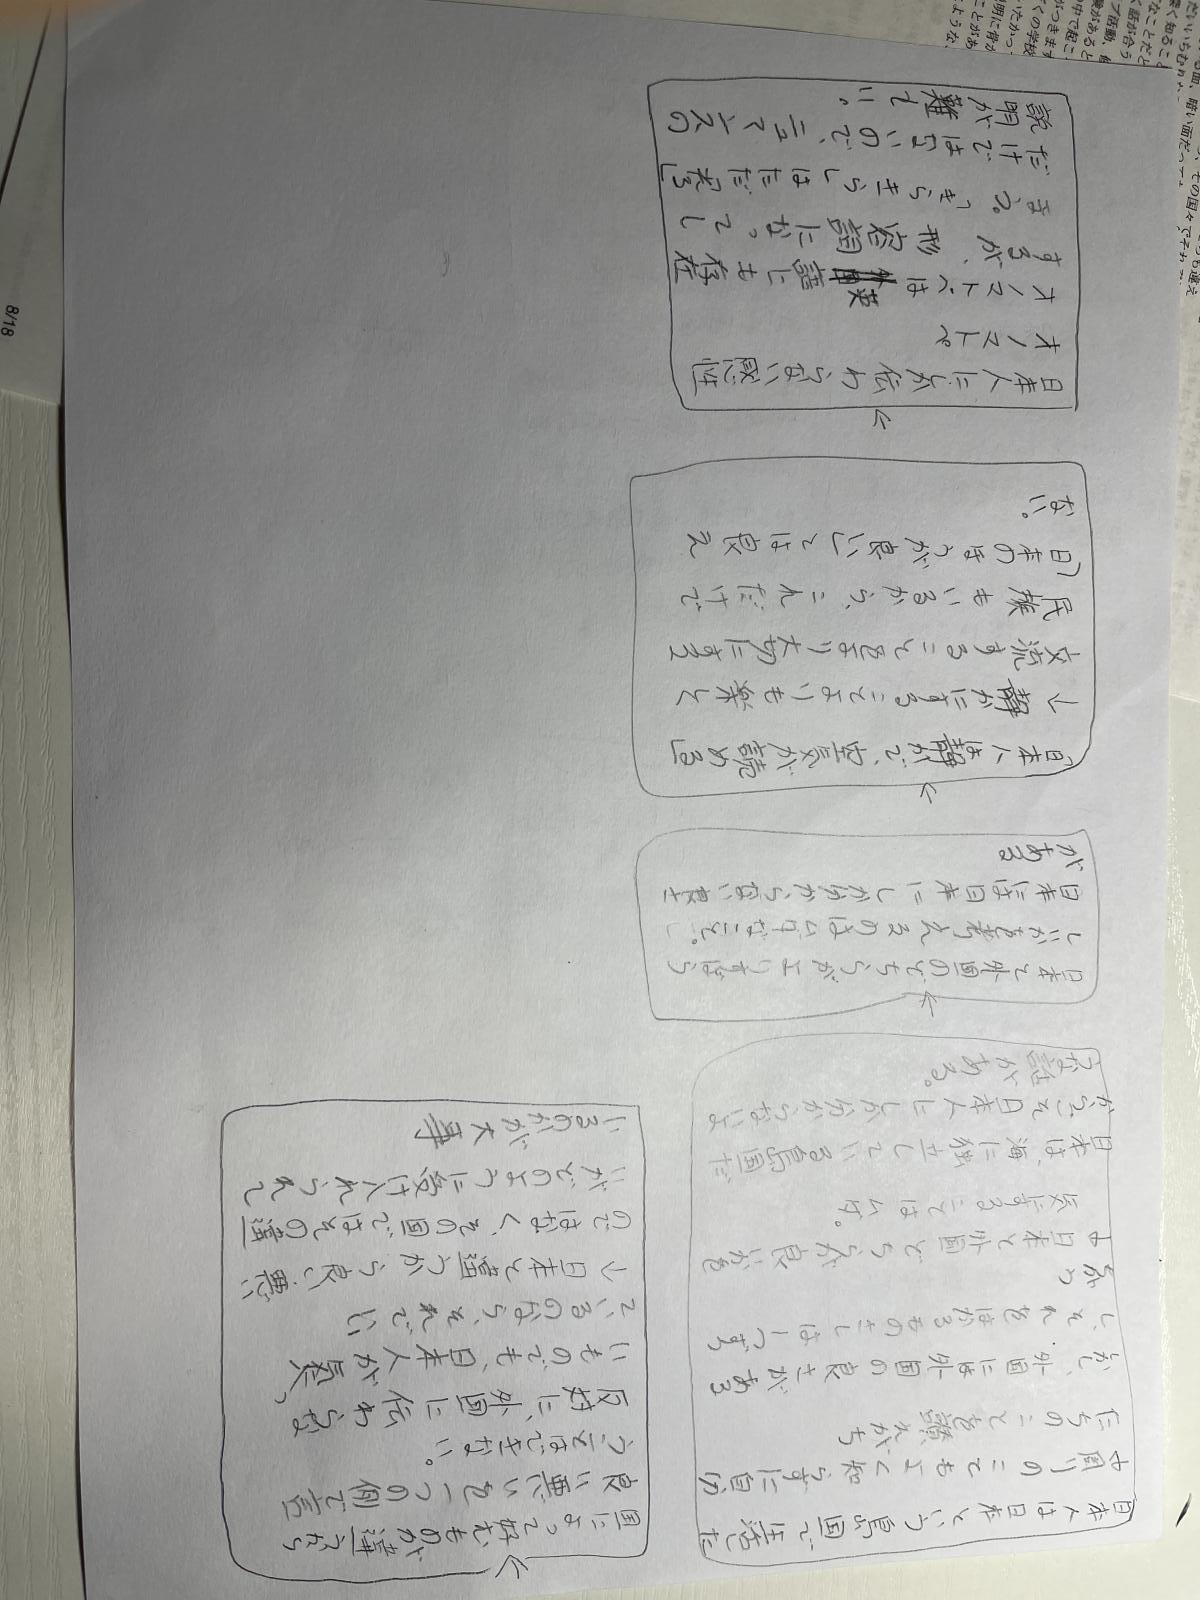 日本人は日本という島国で生活した
周りのこともよく知らずに自分
たちのことを讃えがち
かし、外国には外国の良さがある
し、それをはかるものさしは一つず
日本と外国どちらが良いかを
することはムダ。
日本は、海に独立している島国だ
からこそ日本人にしか分からないよ
うな話がある。
日本と外国のどちらがよりすばら
しいかを考えるのはムダなこと。
日本には日本にしか分からない良さ
がある
「日本人は静かで、空気が読める」
↓静かにすることよりも楽しく
交流することをより大切にする
民族もいるから、これだけで
「日本のほうが良い」とは言え
ない。
日本人にしか伝わらない感性
オノマトペ。
オノマトペは英語にも存在
するが、形容詞になってし
まう。「きらきら」はただ「光る」
だけではないので、ニュアンスの
説明が難しい。
国によって好むものが違うから
良い悪いを一つの例で言
うことはできない。
反対に、外国に伝わらな
いものでも、日本人が
ているのなら、それでいい
↓日本と違うから良い、悪い
のではなく、その国ではその違
いがどのように受け入れられて
いるのかが大事
8/18